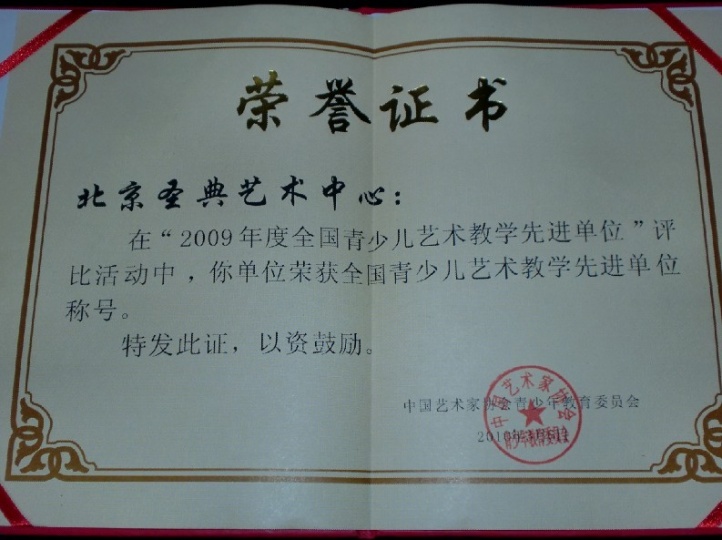 荣誉证书
北京圣典艺术中心：
在“2009年度全国青少儿艺术教学先进单位”评
比活动中，你单位荣获全国青少儿艺术教学先进单位
称号。
特发此证，以资鼓励。
中国艺术家协会青少年教育委员会
中国艺术家协会